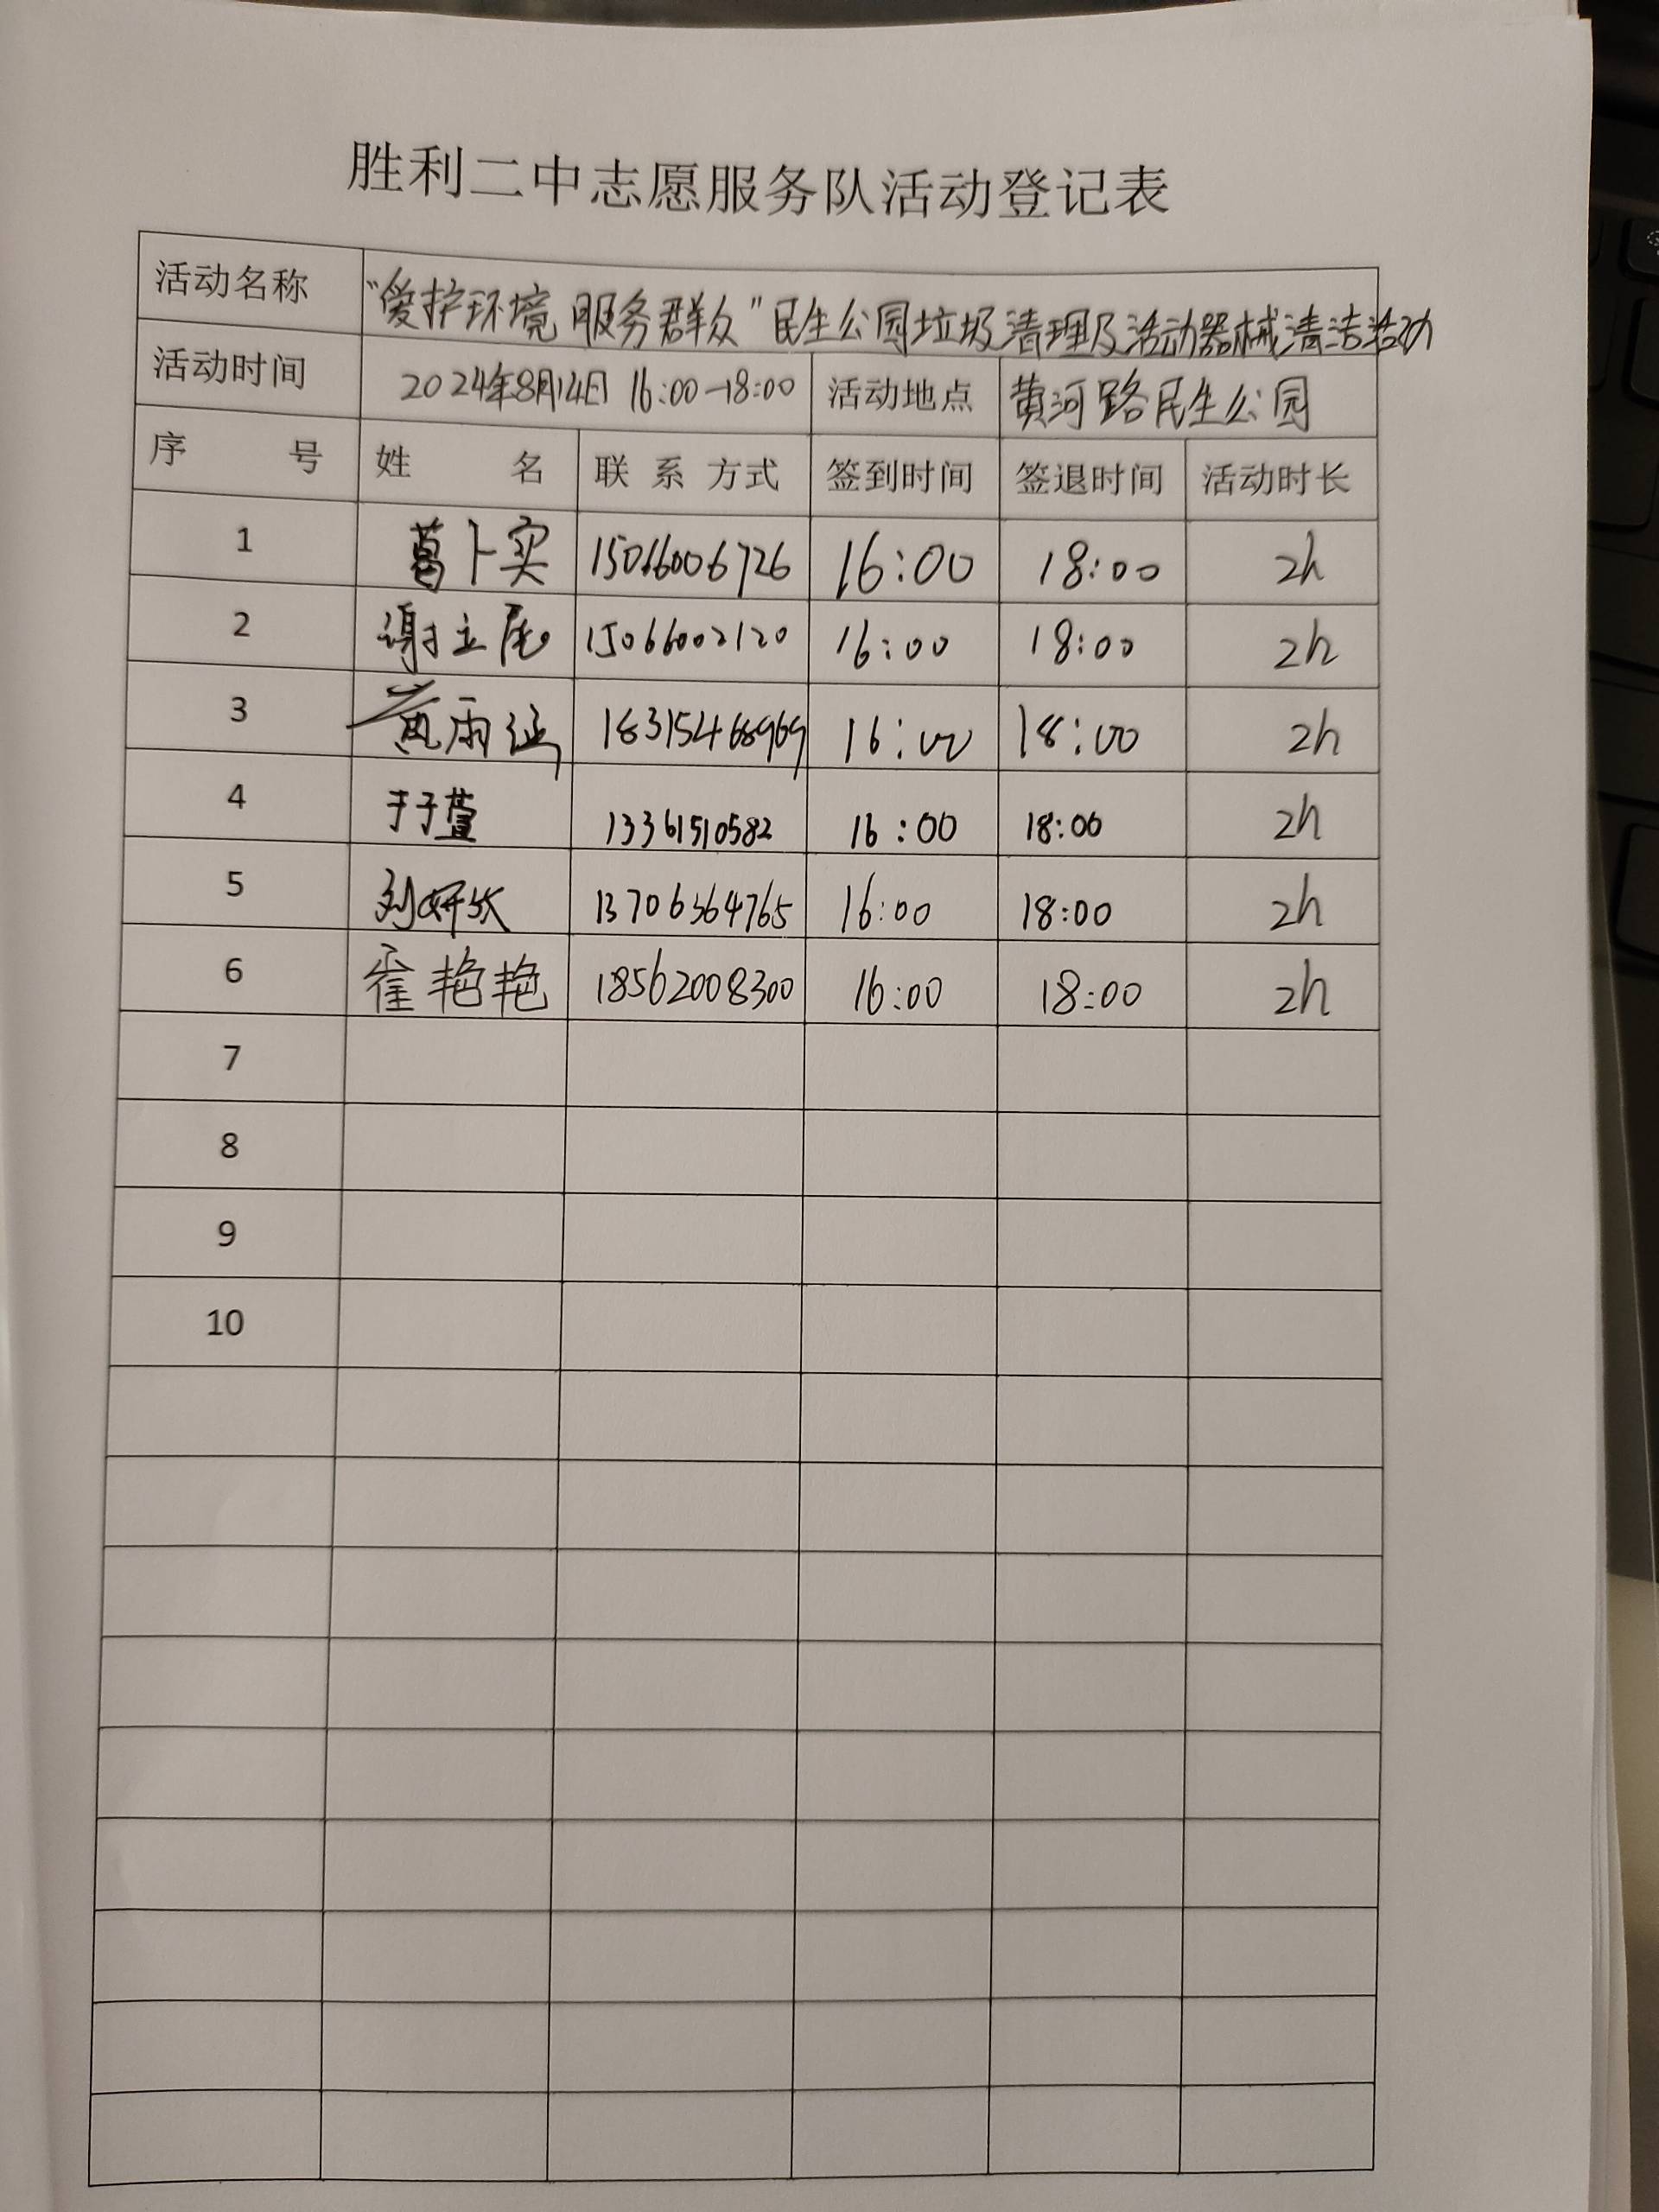 胜利二中志愿服务队活动登记表
活动名称 “爱护环境 服务群众”民生公园垃圾清理及活动器械清洁活动
活动时间 2024年8月14日 16:00-18:00 活动地点 黄河路民生公园
序 号 姓 名 联 系 方式 签到时间 签退时间 活动时长
1 葛卜实 15066006726 16:00 18:00 2h
2 15066002120 16:00 18:00 2h
3 黄雨涵 18315468969 16:00 18:00 2h
4 于子萱 13361510582 16:00 18:00 2h
5 13706364765 16:00 18:00 2h
6 霍艳艳 18562008300 16:00 18:00 2h
7
8
9
10